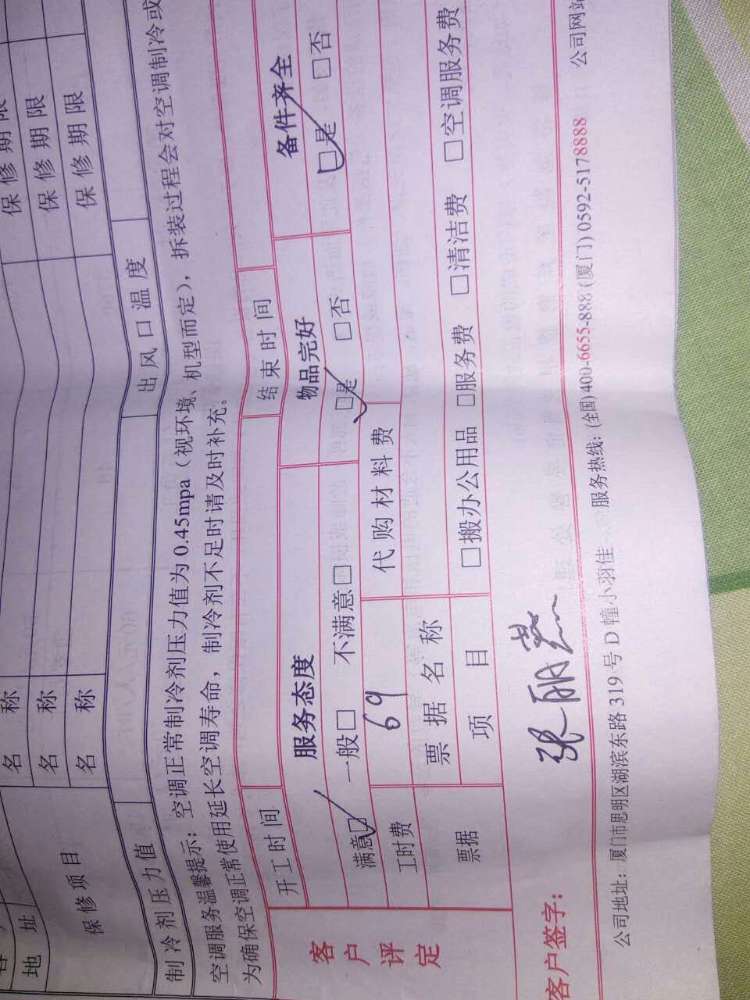 名 称 保 修 期 限
地 址 名 称 保 修 期 限
保 修 项 目 名 称 保 修 期 限
制 冷 剂 压 力 值 出 风 口 温 度
空调服务温馨提示：空调正常制冷剂压力值为 0.45mpa（视环境、机型而定），拆装过程会对空调制冷或
为确保空调正常使用延长空调寿命，制冷剂不足时请及时补充。
开 工 时 间 结 束 时 间
客户评定 服务态度 物品完好 备件齐全
满意☑ 一般□ 不满意□ ☑是 □否 ☑是 □否
工时费 69 代 购 材 料 费
票 据 名 称
票据 项 目 □搬办公用品 □服务费 □清洁费 □空调服务费
客户签字：张丽
公司地址：厦门市思明区湖滨东路 319 号 D 幢小羽佳 服务热线：(全国)400-6655-888 (厦门) 0592-5178888 公司网站